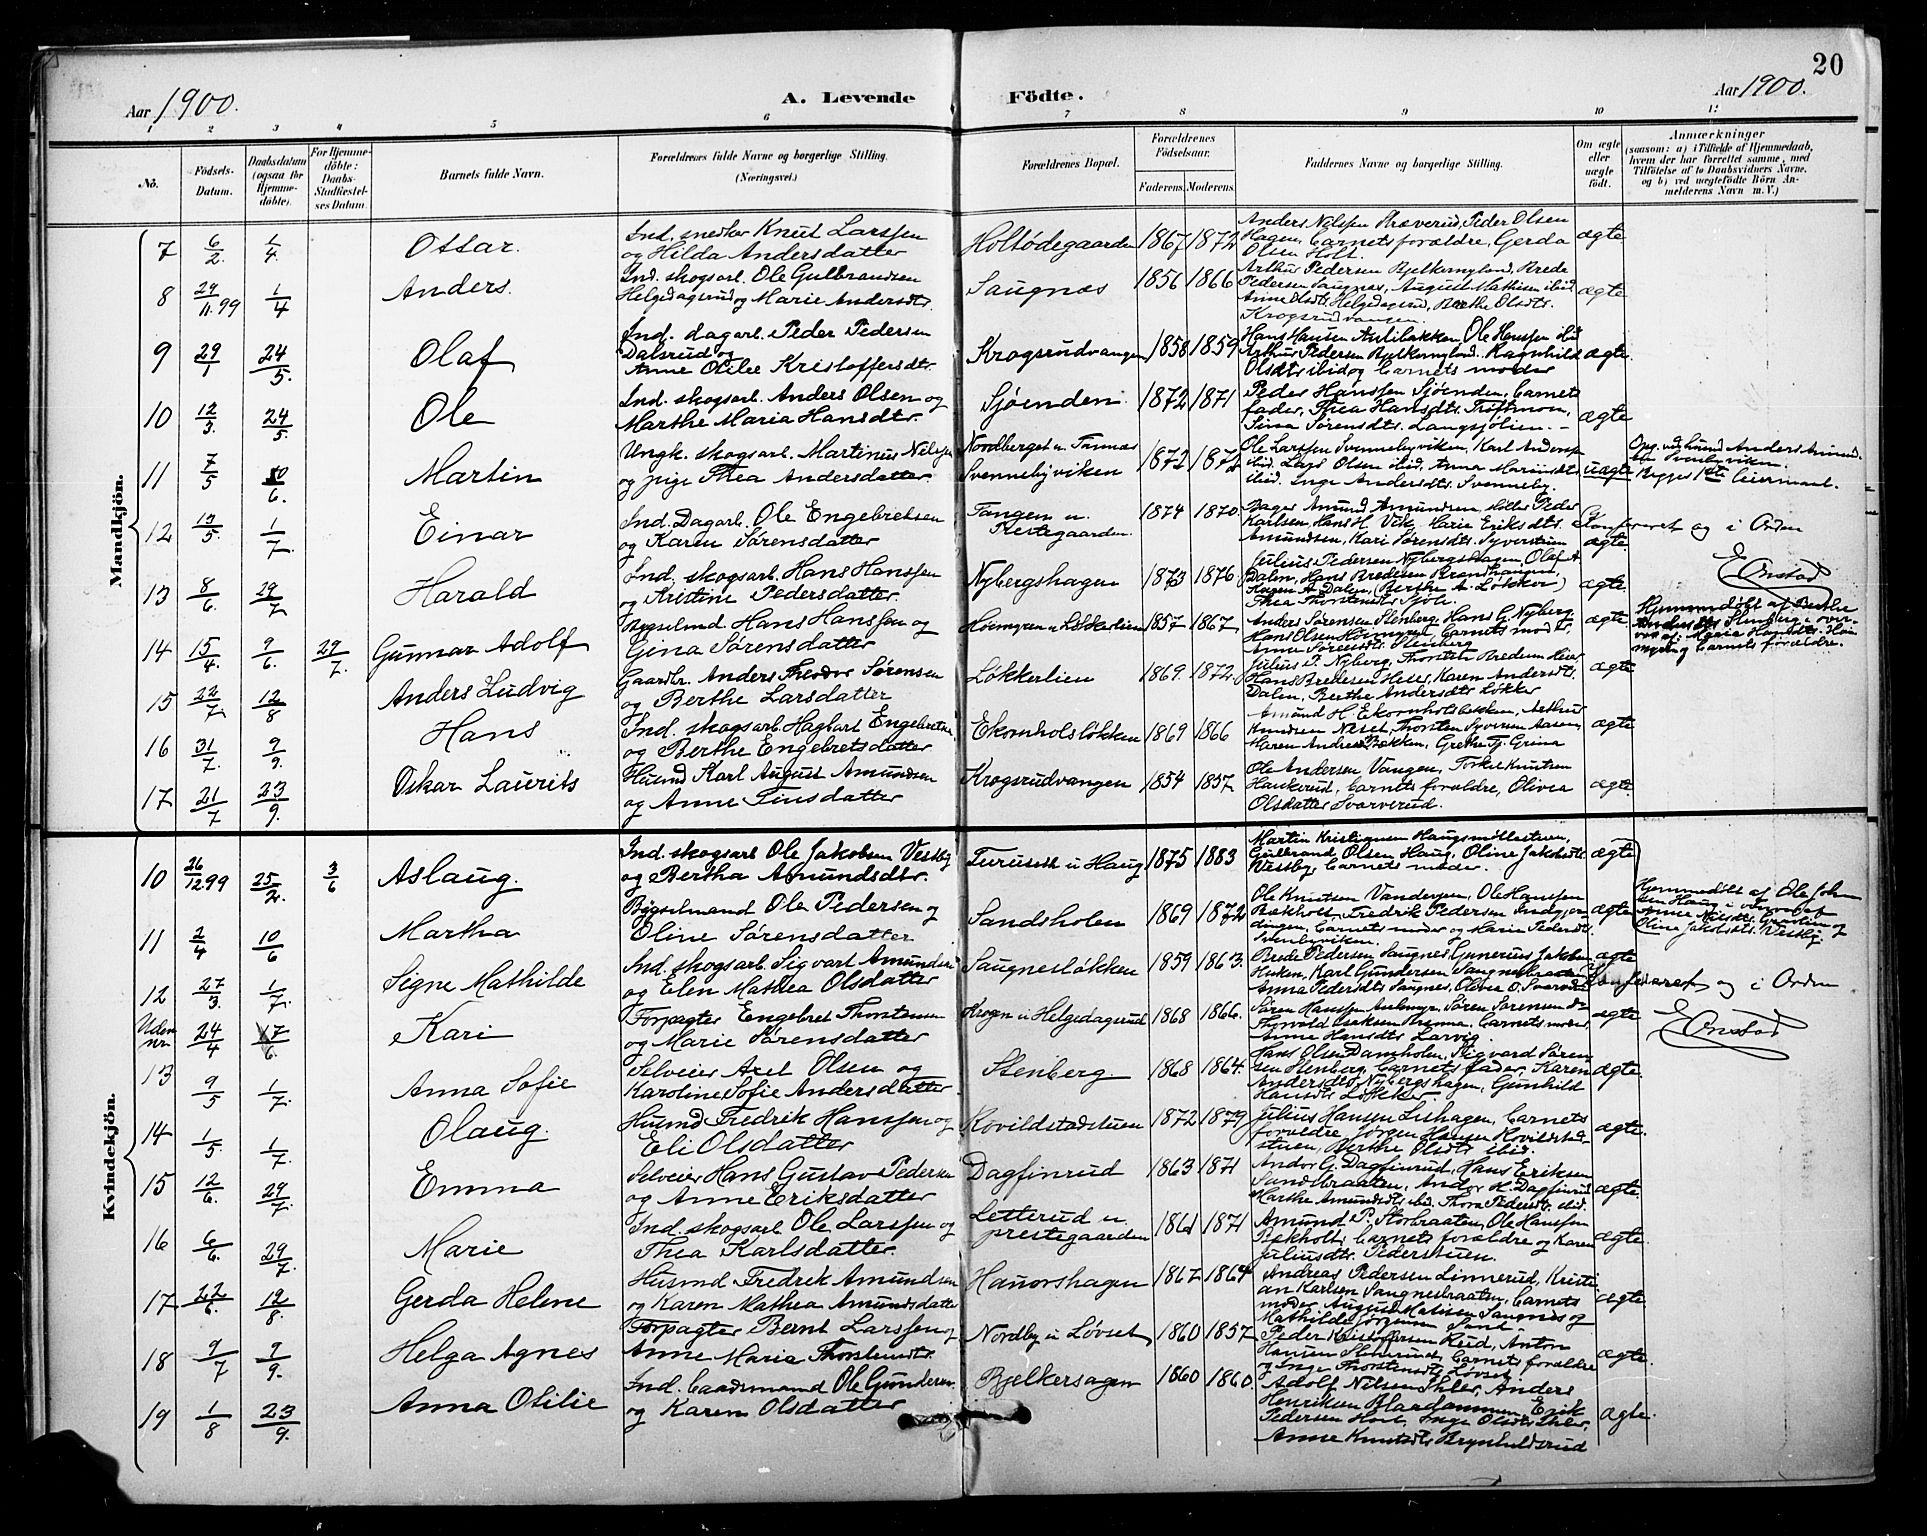 20
Aar 1900. A. Levende Födte. Aar 1900.
1 2 3 4 5 6 7 8 9 10 11
No. Födsels-Datum. Daabsdatum (ogsaa for Hjemme-döbte). For Hjemme-döbte: Daabs-Stadfæstel-ses Datum. Barnets fulde Navn. Forældrenes fulde Navne og borgerlige Stilling. (Næringsvei.) Forældrenes Bopæl. Forældrenes Födselsaar. Faderens. Moderens. Faddernes Navne og borgerlige Stilling. Om ægte eller uægte födt. Anmærkninger (saasom: a) i Tilfælde af Hjemmedaab, hvem der har forrettet samme, med Tilföielse af to Daabsvidners Navne, og b) ved uægtefödte Börn An-melderens Navn m. V.)
Mandkjön.
7 6/2. 1/4. Ottar. Ind. snedker Knut Larssen og Hilda Andersdatter Holtødegaarden 1867 1872 Anders Nilssen Præverud, Peder Olsen Hagen, barnets forældre, Gerda Olsen Holt. ægte
8 29/11.99 1/4 Anders. Ind. skogsarb. Ole Gulbrandsen Helgedagsrud og Marie Andersdtr. Saugnæs 1856 1866 Arthur Pedersen Bjelkemyland, Brede Pedersen Saugnæs, August Mathisen ibid Anne Olsdtr. Helgedagsrud, Berthe Olsdtr. Krogsrudvangen. ægte
9 29/1 24/5. Olaf Ind. dagarb. Peder Pedersen Dalsrud og Anne Otilie Kristoffersdtr. Krogsrudvangen 1858 1859 Hans Hansen Ole Hanssen ibid Arthur Pedersen Bjelkemyland. Ragnhild Olsdtr ibid og barnets moder ægte.
10 12/3. 24/5. Ole Ind. skogsarb. Anders Olsen og Marthe Maria Hansdtr. Sjøenden. 1872 1871 Peder Hanssen Sjøenden, barnets fader, Thea Hansdtr. Trøftmon, Sina Sørensdtr. Langsjølien. ægte
11 7/5 10/6. Martin Ungk. skogsarb. Martinus Nilsen og pige Thea Andersdatter Nordberget u. Svennebyviken 1872 1872 Ole Larssen Svennebyviken, Karl Anderssen ibid. Lars Olsen ibid, Anna ibid. Inge Andersdtr. Svenneby. uægte Opg. ved Anders Begges 1ste leiermaal.
12 13/5. 1/7. Einar Ind. Dagarb. Ole Engebretsen og Karen Sørensdatter Tangen u. Prestegaarden. 1874 1870. Bager Amund Amundsen Peder Karlsen, Hans H. Vik, Marie Eriksdtr. Amundsen, Kari Sørensdtr. Syverstun ægte. Confereret og i Orden
13 8/6. 29/7. Harald Ind. skogsarb. Hans Hanssen og Kristine Pedersdatter Nybergshagen 1873 1876 Julius Pedersen Nybergshagen, Olaf A. Dalen, Hans Bredesen Hagen A. Dalen, (Berthe A. Løkker) Thea Thorstensdtr Sjøli. ægte. E Onstad
14 15/4. 9/6. 29/7. Gunnar Adolf Bygselmd Hans Hanssen og Gina Sørensdatter Hoemyren u. Løkkerlien 1857 1867 Anders Sørensen Stenberg, Hans G. Nyberg, Hans Olsen barnets moder, Anne Sørensdtr. Stenberg ægte Hjemmedøbt af Berthe Andersdtr Stenberg i over-vær af: barnets forældre.
15 22/7. 12/8 Anders Ludvig Gaardbr. Anders Theodor Sørensen og Berthe Larsdatter Løkkerlien 1869. 1872. Julius P. Nyberg, Thorsten Bredesen Hans Bredesen Karen Andersdtr. Dalen, Berthe Andersdtr Løkker ægte
16 31/7. 9/9. Hans Ind. skogsarb. Hagbart Engebretsen og Berthe Engebretsdatter Ekornholsløkken 1869 1866 Amund H. Ekornholsbakken, Arthur Knudsen Næset, Thorsten Syversen Aasen, Maren Andersd Bakken, Grethe T. Grina ægte
17 21/7 23/9. Oskar Laurits Husmd Karl August Amundsen og Anne Finsdatter Krogsrudvangen 1854 1857 Ole Andersen Vangen, Torkel Knutsen Haukerud, barnets forældre, Olivia Olsdatter Svarverud. ægte
Kvindekjön.
10 26/12.99 25/2. 3/6 Aslaug. Ind. skogsarb Ole Jakobsen Vestby og Bertha Amundsdtr. Furuseth u Haug 1875 1883 Martin Kristiansen Haugsmøllestuen, Gulbrand Olsen Haug, Oline Jakobsdtr. Vestby, barnets moder. ægte Hjemmedøbt af Ole Joh sen Haug i overvær af Anne Nilsdtr. og Oline Jakobsdtr. Vestby.
11 2/4 10/6 Martha Bygselmand Ole Pedersen og Oline Sørensdatter Sandsholen 1869 1872 Ole Knutsen Vandergen, Ole Hanssen Bakholt, Fredrik Pedersen barnets moder og Marie Pedersdtr. Svenbyviken. ægte
12 27/3. 1/7. Signe Mathilde Ind. skogsarb. Sigvart Amundsen og Elen Mathea Olsdatter Saugnesløkken 1859 1863. Brede Pedersen Saugnes, Gunerius Jakobsen Karl Gundersen Saugnesbraaten, Anna Pedersdtr Saugnes, Olivia O. Svarverud ægte Confereret og i Orden
Uden nr. 24/4 17/6. Kari Forpagter Engebret Thorstensen og Marie Sørensdatter Krogen u Helgedagsrud 1868 1866. Søren Hanssen Søren Sørensen barnets moder, Anne Hansdtr Larvig. ægte E Onstad
13 9/5 1/7. Anna Sofie Selveier Axel Olsen og Karoline Sofie Andersdatter Stenberg. 1868 1864. Hans Olsen Damholen, Sigvard Søren sen Stenberg, barnets fader, Karen Andersdtr. Nybergshagen, Gunhild Hansdtr Løkker. ægte.
14 1/5. 1/7. Olaug. Husmd Fredrik Hanssen og Eli Olsdatter Kovildstadstuen 1872 1879 Julius Hansen Lishagen, barnets forældre, Jørgen Hansen Kovildstad-stuen, Berthe Olsdtr. ibid. ægte.
15 12/6. 29/7. Emma Selveier Hans Gustav Pedersen og Anne Eriksdatter Dagfinrud 1863 1871 Andor G. Dagfinrud, Hans Eriksen Sandbraaten, Andor H. Dagfinrud Marthe Amundsdtr ibid. Thora Pedersdtr. ibid. ægte.
16 6/6 29/7. Marie Ind. skogsarb Ole Larssen og Thea Karlsdatter. Letterud u. prestegaarden 1861 1871 Amund P. Storbraaten, Ole Hanssen Bakholt, barnets forældre og Karen Juliusdtr. Pederstuen. ægte.
17 22/6. 12/8. Gerda Helene Husmd Fredrik Amundsen og Karen Mathea Amundsdatter Hanorshagen 1867 1864 Andreas Pedersen Linnerud, Kristi an Karlsen Saugnesbraaten, barnets moder, August Mathisen Saugnes og Mathilde Jørgensen Sand. ægte
18 9/7 9/9. Helga Agnes Forpagter Bernt Larssen og Anne Maria Thorstensdtr. Nordby u Løvset 1860 1857 Peder Kristoffersen Rud, Anton Hansen Stenrud, barnets forældre og Inge Thorstensdtr Løvset ægte.
19 1/8 23/9. Anna Otilie Ind. baadsmand Ole Gundersen og Karen Olsdatter Bjelkersagen 1860 1860. Adolf Nilsen Ihler, Anders Henriksen Blaadammen, Erik Pedersen Holt, Inge Olsdtr Ihler, Anne Knutsdtr Brynhildsrud ægte.